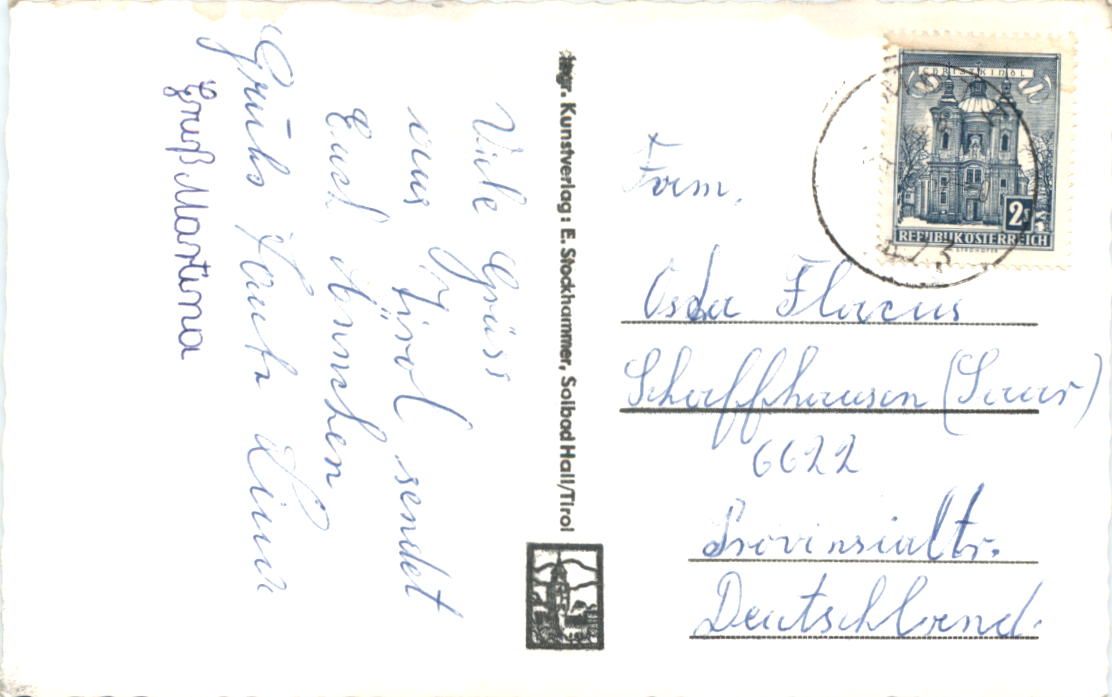 Viele Grüss
aus Tirol sendet
Euch Annchen
Grüße Tante
Gruß Martina
Kunstverlag: E. Stockhammer, Solbad Hall/Tirol
CHRISTKINDL
2s
REPUBLIK ÖSTERREICH
Fam.
Flacus
Schaffhausen (Saar)
6622
Provinzialstr.
Deutschland.